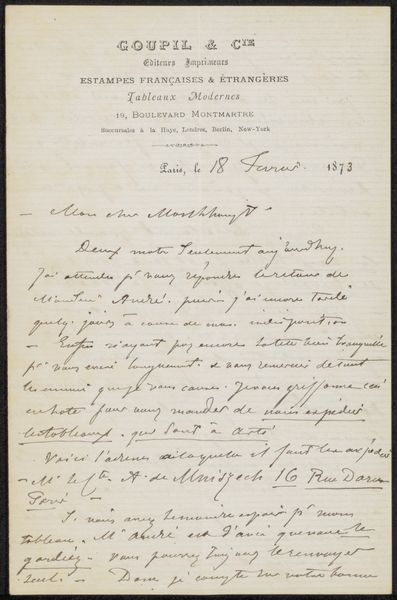 GOUPIL & CIE
Editeurs Imprimeurs
ESTAMPES FRANÇAISES & ÉTRANGÈRES
Tableaux Modernes
19, BOULEVARD MONTMARTRE
Succursales à la Haye, Londres, Berlin, New-York
Paris, le 18 Février 1873
Mon cher
Deux mots seulement aujourd'hui.
J'ai attendu pr vous répondre le retour de
Monsieur André. puis j'ai encore tardé
quelq. jours à cause de mon indisposition
Enfin n'ayant pas encore la tête bien tranquille
pr vous écrire longuement & vous remercier de tout
les ennuis que je vous cause. Je vous griffonne ceci
en hâte pour vous mander de nous expédier
les tableaux que sont à
Voici l'adresse à laquelle il faut les expédier
Mr le Cte A. de Mniszech 16 Rue Daru
Paris
Si vous avez le moindre espoir pr
tableau. Mr André est d'avis que vous le
gardiez. vous pourrez toujours le renvoyer
seul. Donc je compte sur votre bonne